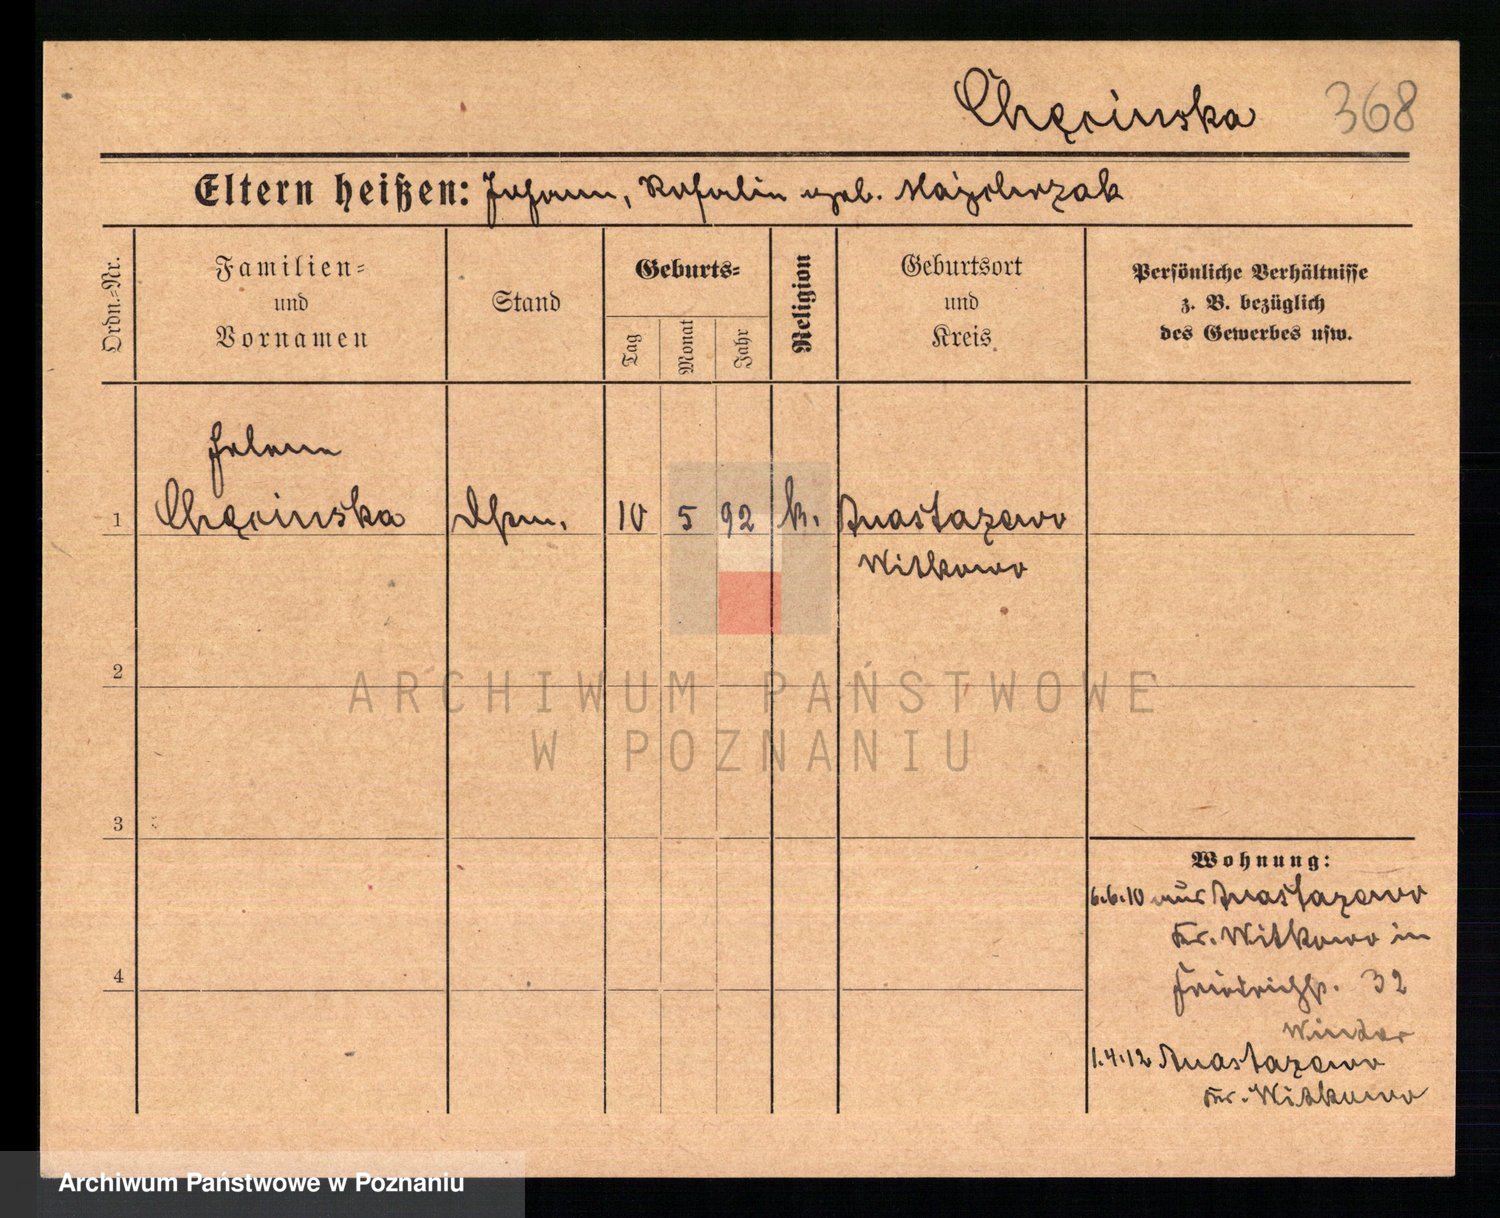 Chęcinska 368
Eltern heißen: Johann, Rosalin geb. Majcherzak
Ordn.=Nr.
Familien=
und
Vornamen
Stand
Geburts=
Tag
Monat
Jahr
Religion
Geburtsort
und
Kreis
Persönliche Verhältnisse
z. B. bezüglich
des Gewerbes usw.
Helene
1 Chęcinska Dhm. 10 5 92 k. Anastazewo
Witkowo
2
ARCHIWUM PAŃSTWOWE
W POZNANIU
3
Wohnung:
6.6.10 aus Anastazewo
Kr. Witkowo in
Friedrichstr. 32
4
1.4.12 Anastazewo
Kr. Witkowo
Archiwum Państwowe w Poznaniu